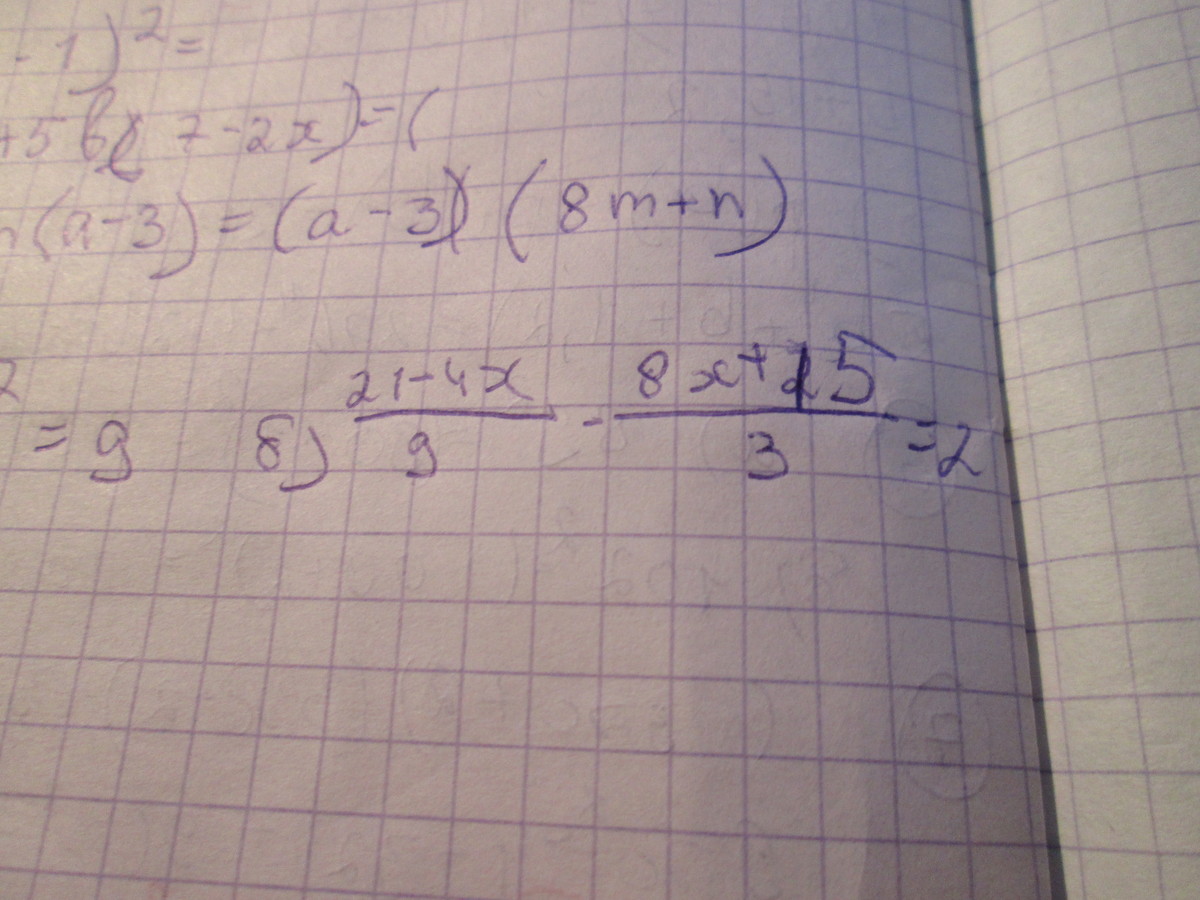 - 1)² =
+5 7-2x)=(
(a-3) = (a-3) (8m+n)
= 9 б) 21-4x/9 - 8x+15/3 =2